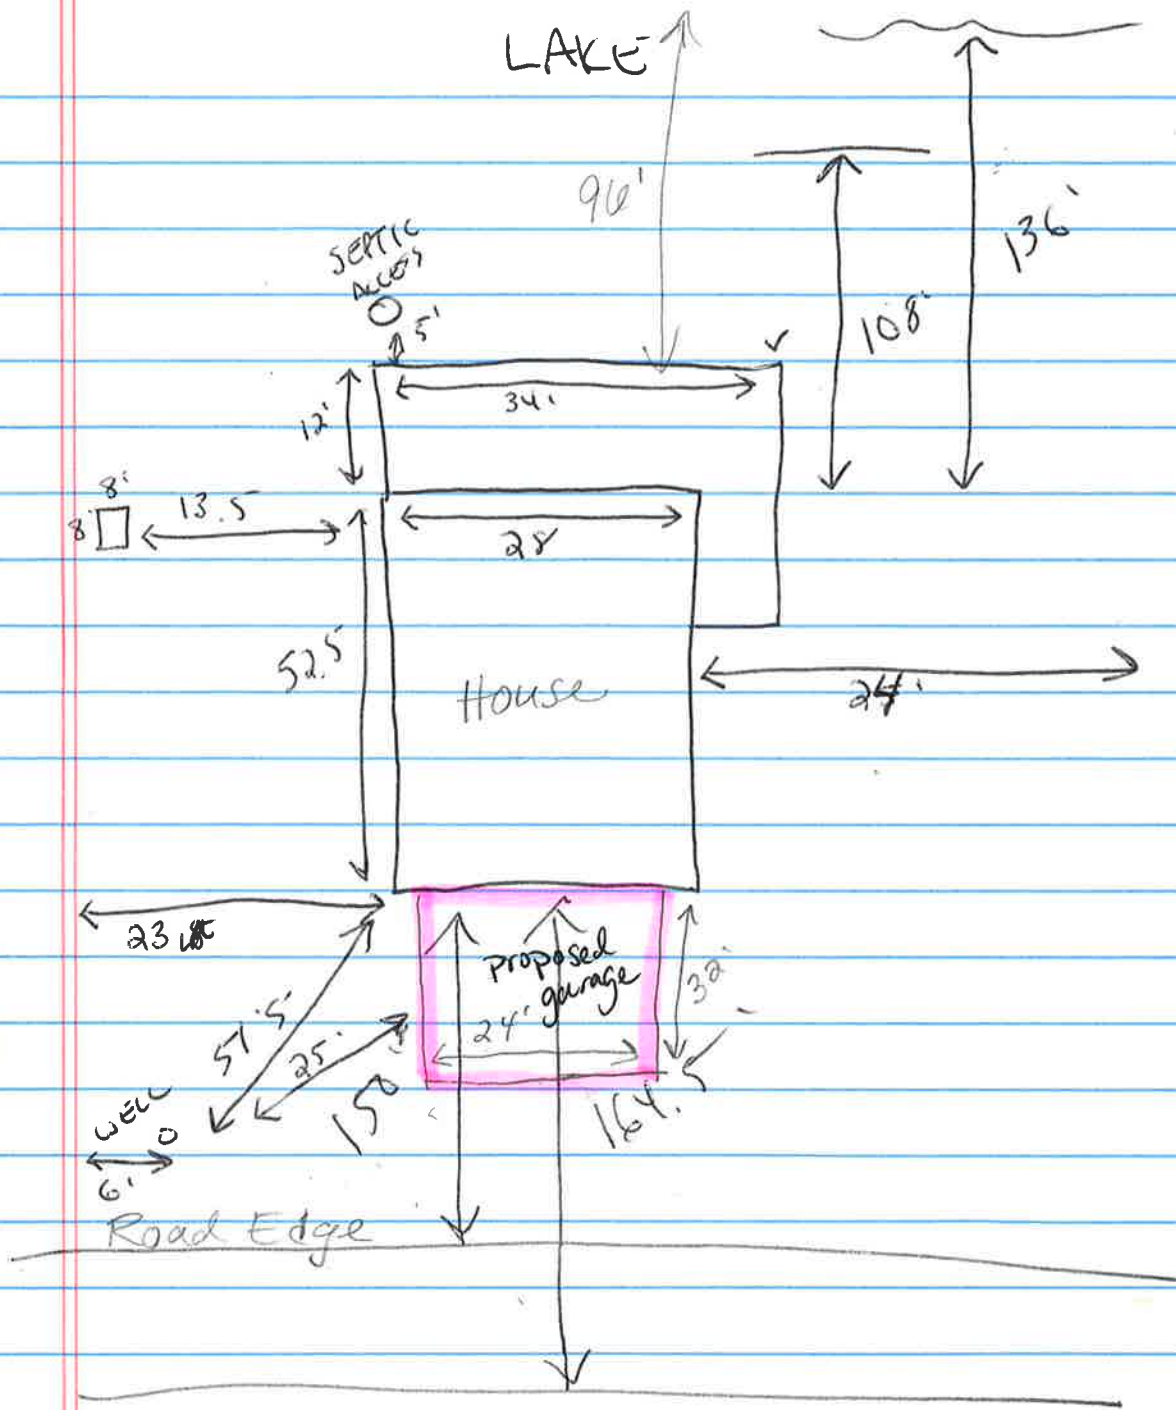 LAKE
96'
136'
108'
SEPTIC
ACCESS
5'
34'
12'
8'
8'
13.5
28
52.5
House
24'
23
proposed
garage
32'
24'
57.5'
25'
150'
164.5'
WELL
6'
Road Edge